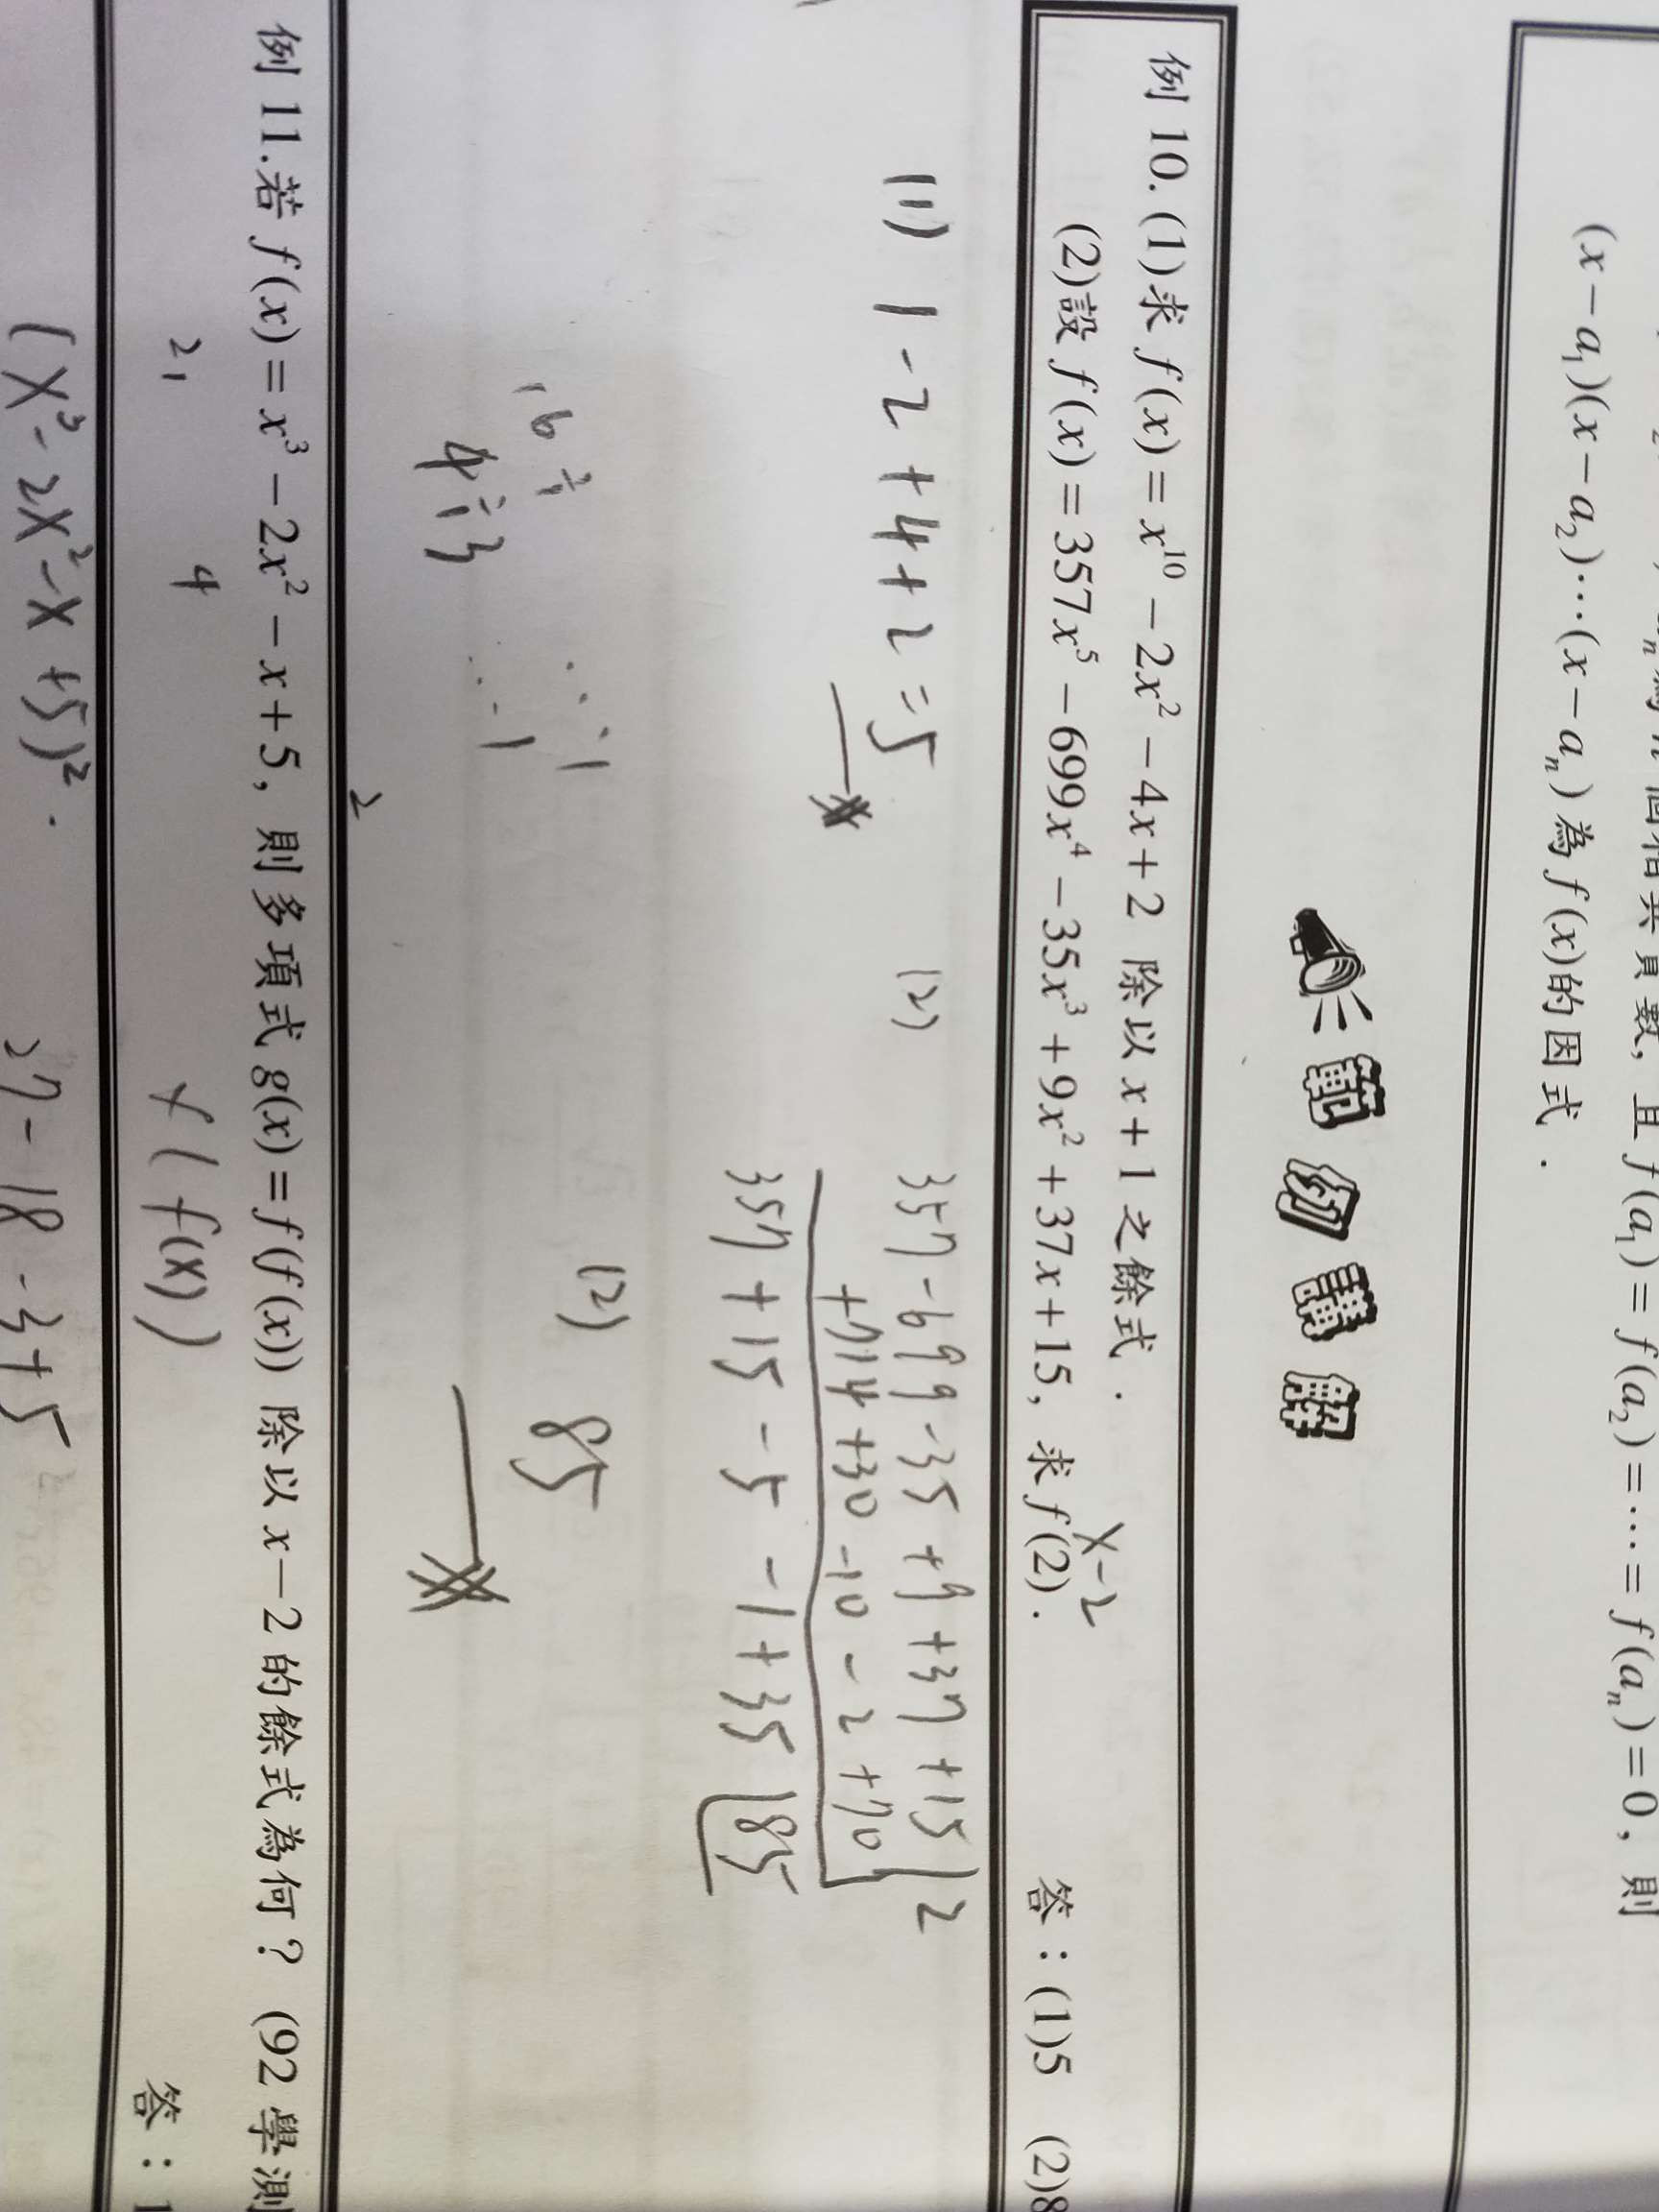 個相異實數，且 f(a₁) = f(a₂) = … = f(aₙ) = 0，則
(x − a₁)(x − a₂)⋯(x − aₙ) 為 f(x)的因式．
範例講解
例 10. (1)求 f(x) = x¹⁰ − 2x² − 4x + 2 除以 x + 1 之餘式．
x-2
(2)設 f(x) = 357x⁵ − 699x⁴ − 35x³ + 9x² + 37x + 15，求 f(2)． 答：(1)5 (2)8
(1) 1 - 2 + 4 + 2 = 5
(2) 357 - 699 - 35 + 9 + 37 + 15 | 2
+714 +30 -10 - 2 +70
357 + 15 - 5 - 1 + 35 | 85
(2) 85
16
4 13
2
例 11.若 f(x) = x³ − 2x² − x + 5，則多項式 g(x) = f(f(x)) 除以 x − 2 的餘式為何？ (92 學測
2, 4 f(f(x)) 答：1
(x³-2x²-x+5)². 27-18-3+5